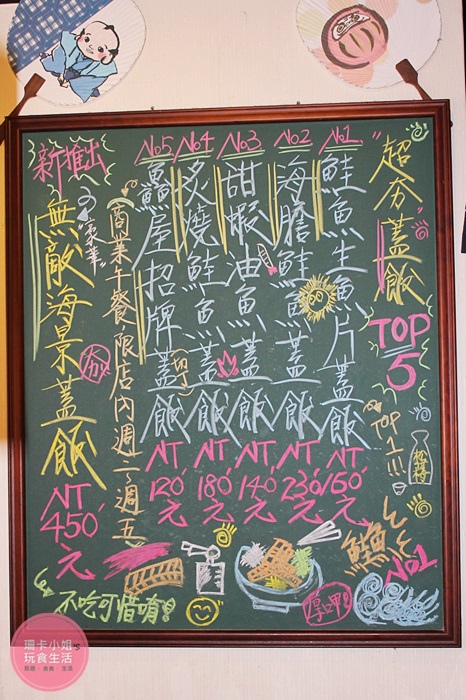 "超夯"蓋飯
TOP
5
TOP 1!!!
No1.
鮭魚生魚片蓋飯
NT,
160元
No2
海膽鮭魚蓋飯
NT,
230元
No3
甜蝦油魚蓋飯
NT,
140元
No4
炙燒鮭魚(切)蓋飯
NT,
180元
No5
鰭屋招牌蓋飯
NT,
120元
(商業午餐,限店內週一~週五)
新推出
"豪華"
無敵海景蓋飯
夯
NT
450元
不吃可惜唷!
厚呷!
No1
珊卡小姐
玩食生活
旅遊·美食·生活